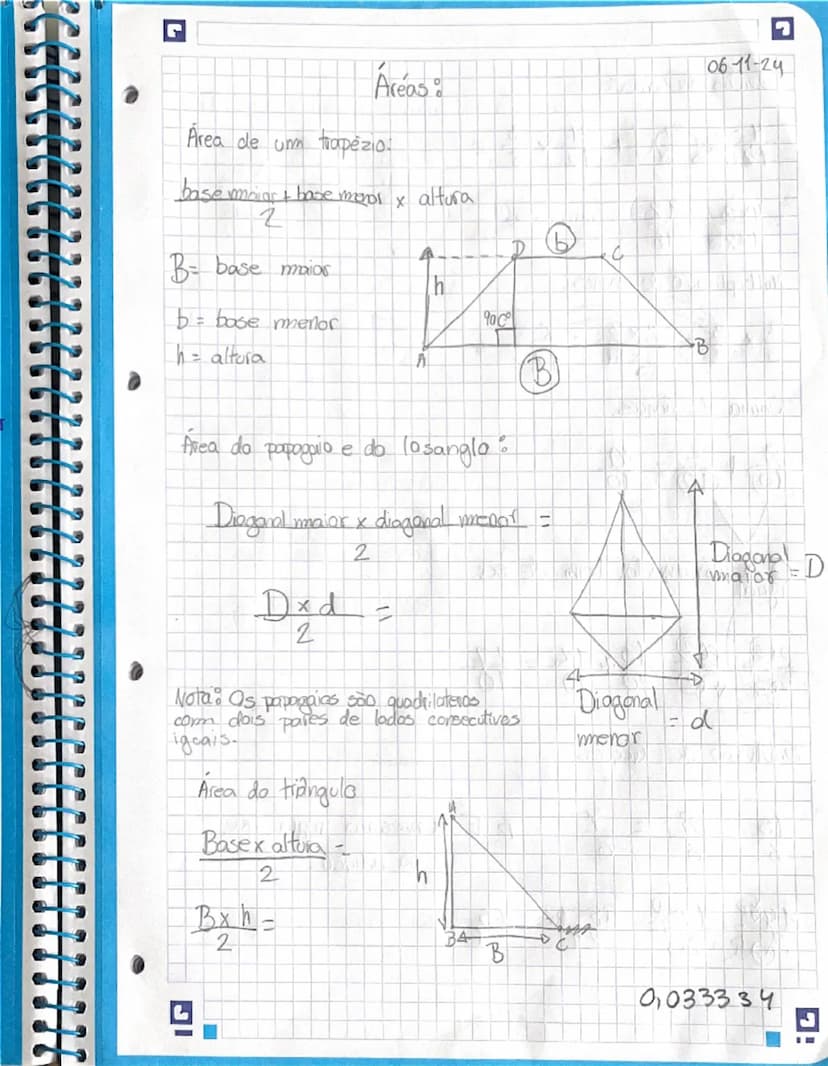 Áreas:
06-11-24
Área de um trapézio:
base maior + base menor x altura
2
B= base maior
b = base menor
h = altura
D b C
h
90Cº
A B
B
Área do papagaio e do losanglo:
Diagonal maior x diagonal menor =
2
D x d =
2
Diagonal
maior = D
Diagonal
menor = d
Nota: Os papagaios são quadriláteros
com dois pares de lados consecutives
iguais.
Área do triângulo
Base x altura =
2
B x h =
2
A
h
B C
B
0,033334